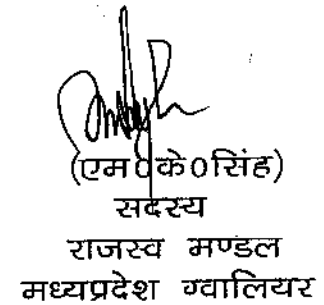 (एम0के0सिंह)
सदस्य
राजस्व मण्डल
मध्यप्रदेश ग्वालियर